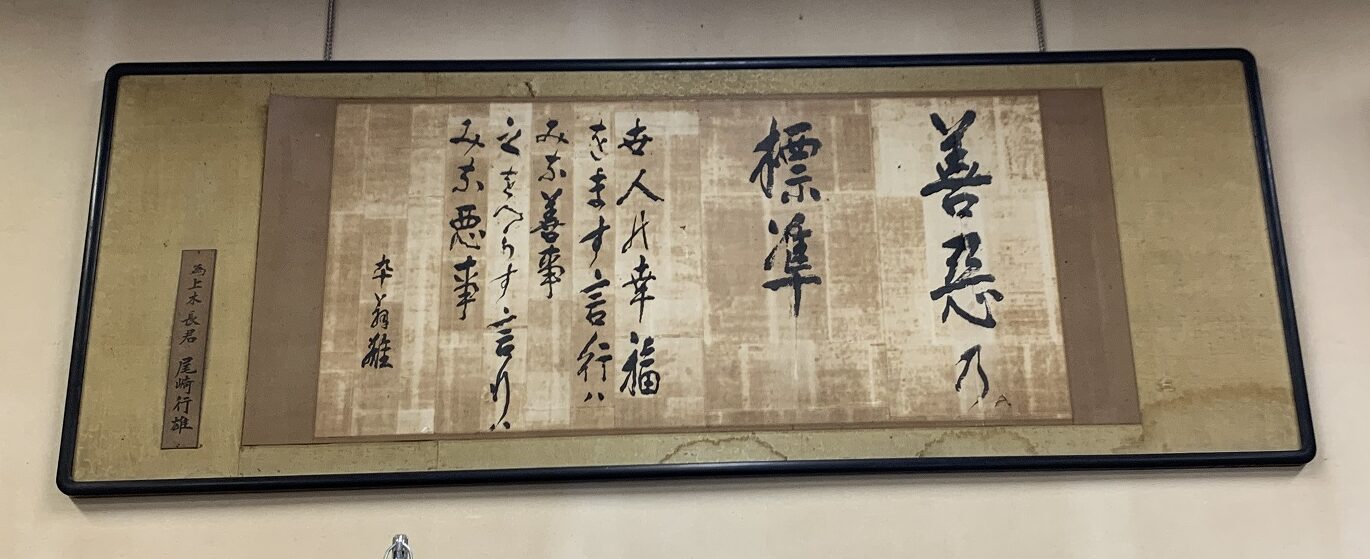 善惡乃
標準
世人の幸福
をます言行ハ
みな善事
之をへらす言行ハ
みな悪事
卆翁雄
為上木長君 尾崎行雄